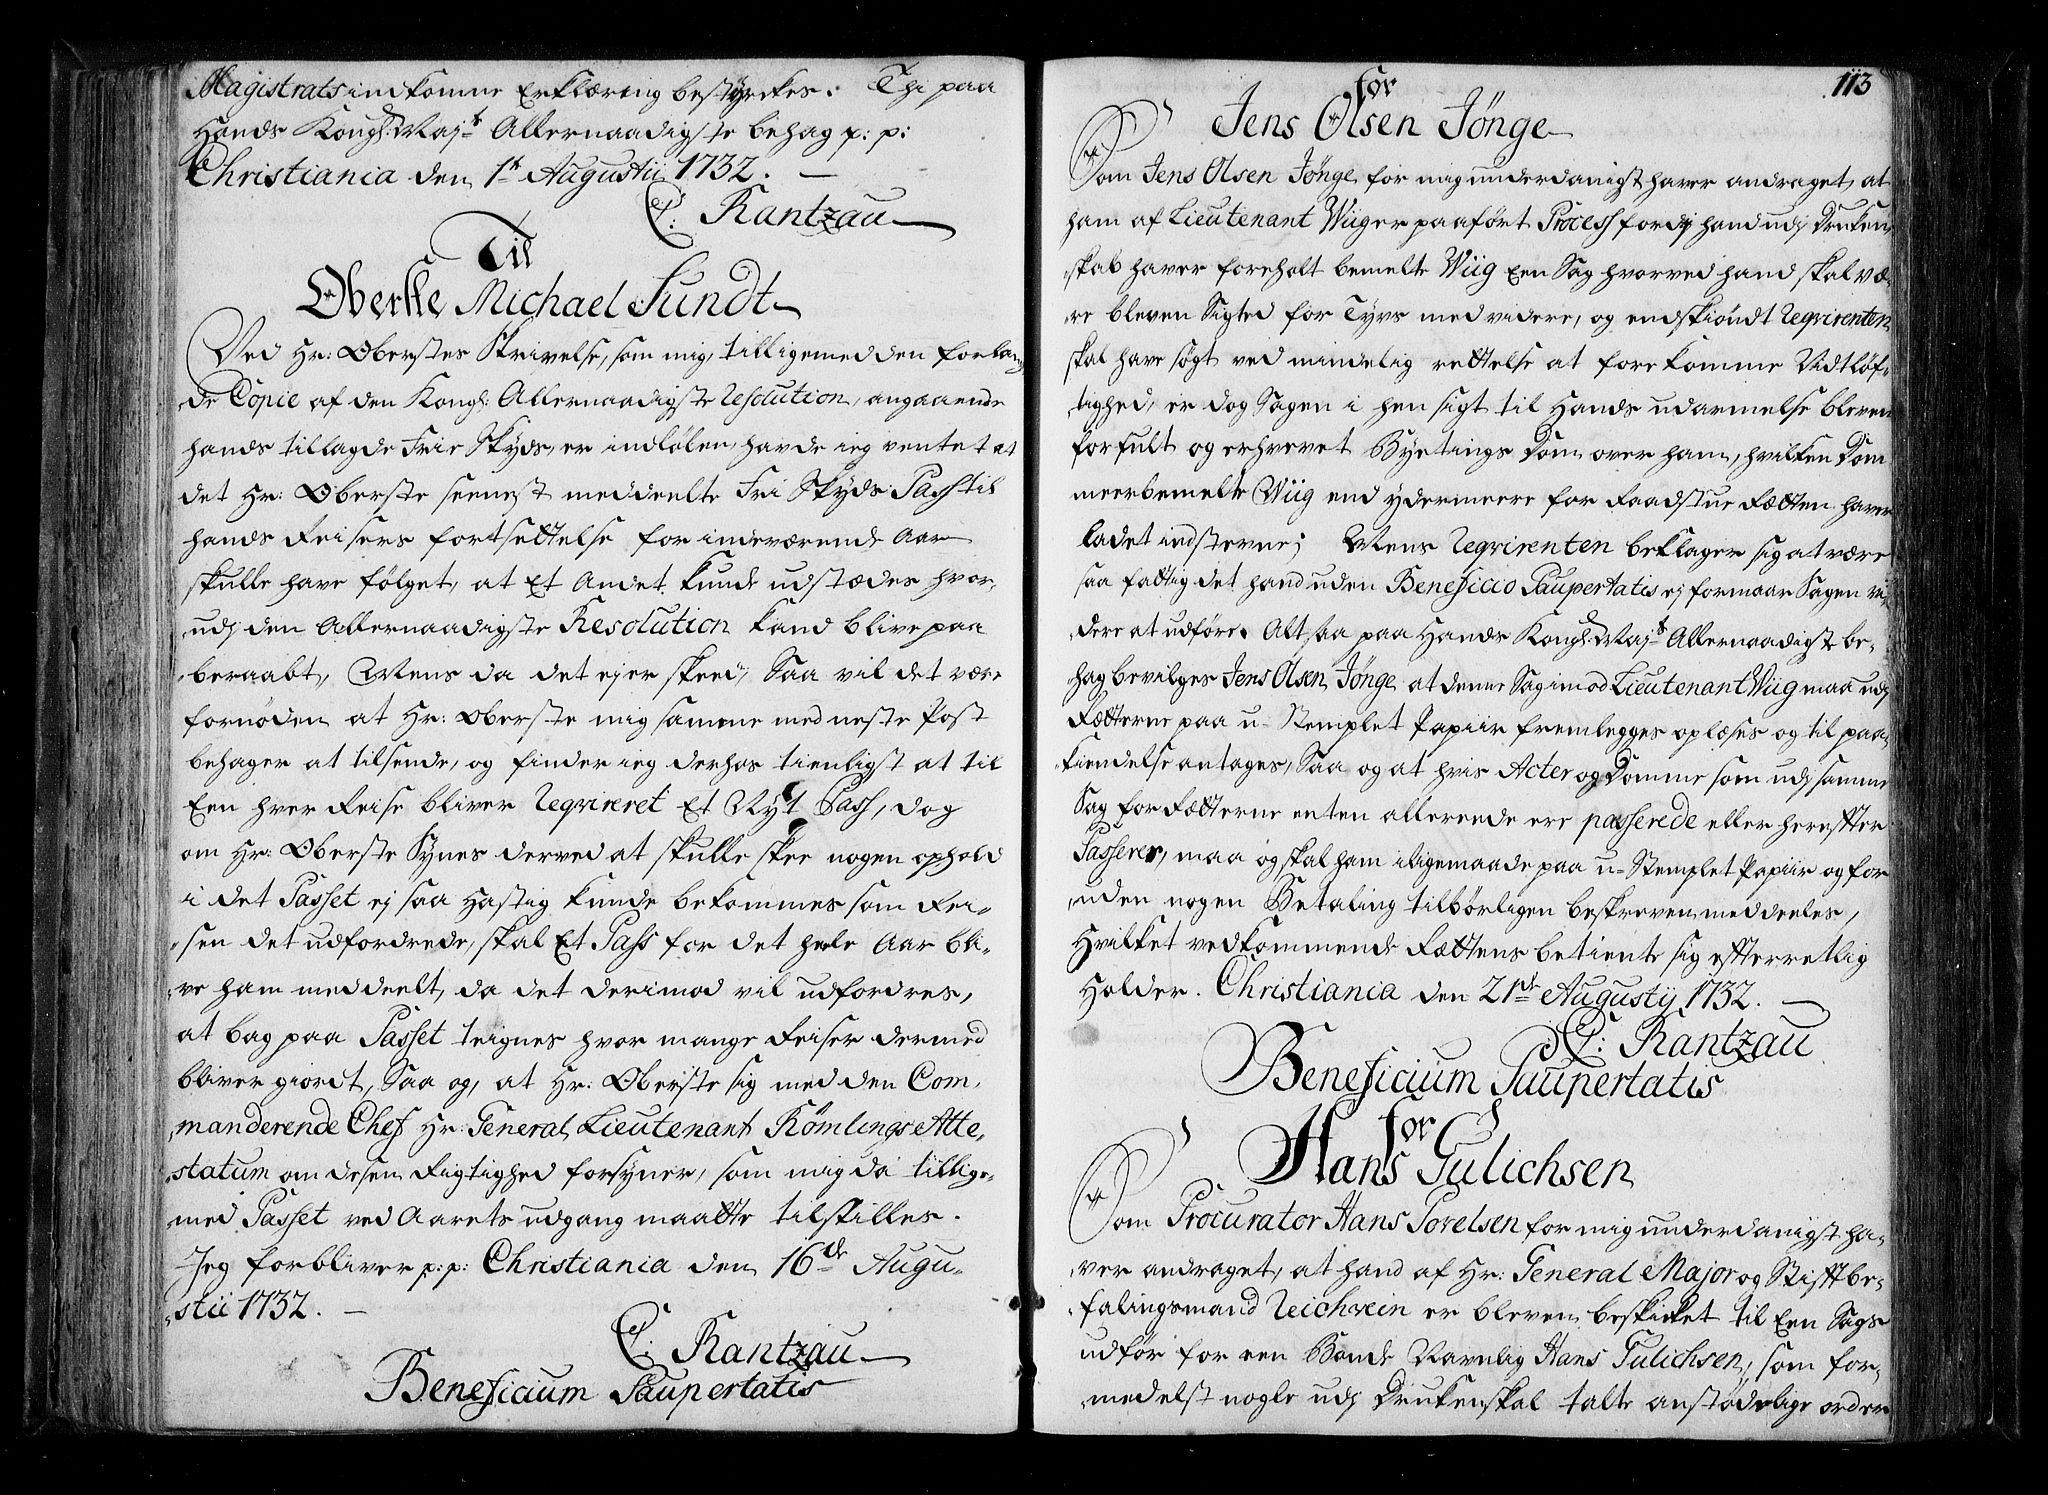 Magistrats indkomne Erklæring bestyrckes: Thi paa
Hands Kongl: Mayts Allernaadigste behag p: p:
Christiania den 1te Augustii 1732.
C: Rantzau
Til
Oberste Michael Sundt
Ved Hr: Oberstes Skrivelse, som mig tilligemed den forlan-
de Copie af den Kongl: Allernaadigste Resolution, angaaende
hands tillagde Frie Skyds, er indløben, havde ieg ventet at
det Hr: Oberste seenest meddeelte Fri Skyds Pass til
hands Reisers fortsettelse for indeværende Aar
skulle have følget, at Et Andet kunde udstædes hvor-
udj den Allernaadigste Resolution kand blive paa
beraabt, Mens da det ej er skeed, Saa vil det være
fornøden at Hr: Oberste mig samme med neste Post
behager at tilsende, og finder ieg derhos tienligst at til
Een hver Reise bliver Reqvireret Et Nyt Pass, dog
om Hr: Oberste Synes derved at skulle skee nogen ophold
i det Passet ej saa Hastig kunde bekommes som Rei-
sen det udfordrede, skal Et Pass for det heele Aar bli-
ve ham meddeelt, da det derimod vil udfordres,
at bag paa Passet teignes hvor mange Reiser dermed
bliver giordt, Saa og, at Hr: Oberste sig med den Com-
manderende Chef Hr: General Lieutenant Rømlings Atte-
statum om desen Rigtighed forsyner, som mig da tillige-
med Passet ved Aarets udgang maatte tilstilles.
Jeg forbliver p: p: Christiania den 16de Augu-
stii 1732.
C: Rantzau
Beneficium Paupertatis
113
for
Jens Olsen Jønge
Som Jens Olsen Jønge for mig underdanigst haver andraget, at
ham af Lieutenant Wiig er paaført Process fordj hand udj Druken-
skab haver foreholt bemelte Wiig Een Sag hvorved hand skal væ-
re bleven Sigted for Tyvs med videre, og endskiøndt Reqvirenten
skal have søgt ved mindelig rettelse at forekomme Vidtløf-
tighed, er dog Sagen i hensigt til Hands udarmelse bleven
forfult og erhvervet Byetings Dom over ham, hvilken Dom
meerbemelte Wiig end ydermeere for Raadstue Retten haver
ladet indsterne; Mens Reqvirenten beklager sig at være
saa fattig det hand uden Beneficio Paupertatis ej formaar Sagen vi-
dere at udføre. Alt saa paa Hands Kongl: Mayts Allernaadigste be-
hag bevilges Jens Olsen Jønge at denne Sag imod Lieutenant Wiig maa udj
Retterne paa u-Stemplet Papiir fremlegges oplæses og til paa-
kiendelse antages, Saa og at hvis Acter og Domme som udj samme
Sag for Retterne enten allerede ere passerede eller hereffter
Passerer, maa og skal ham iligemaade paa u-Stemplet Papiir og for-
uden nogen Betaling tilbørligen beskreven meddeeles,
Hvilket vedkommende Rettens betiente sig efterretlig
Holder. Christiania den 21de Augustij 1732.
C: Rantzau
Beneficium Paupertatis
for
Hans Gulichsen
Som Procurator Hans Povelsen for mig underdanigst ha-
ver andraget, at hand af Hr: General Major og Stifftbe-
falingsmand Reichwein er bleven beskicket til Een Sags
udfør for een Bonde Navnlig Hans Gulichsen, som for-
medelst nogle udj Drukenskal talte anstødelige order